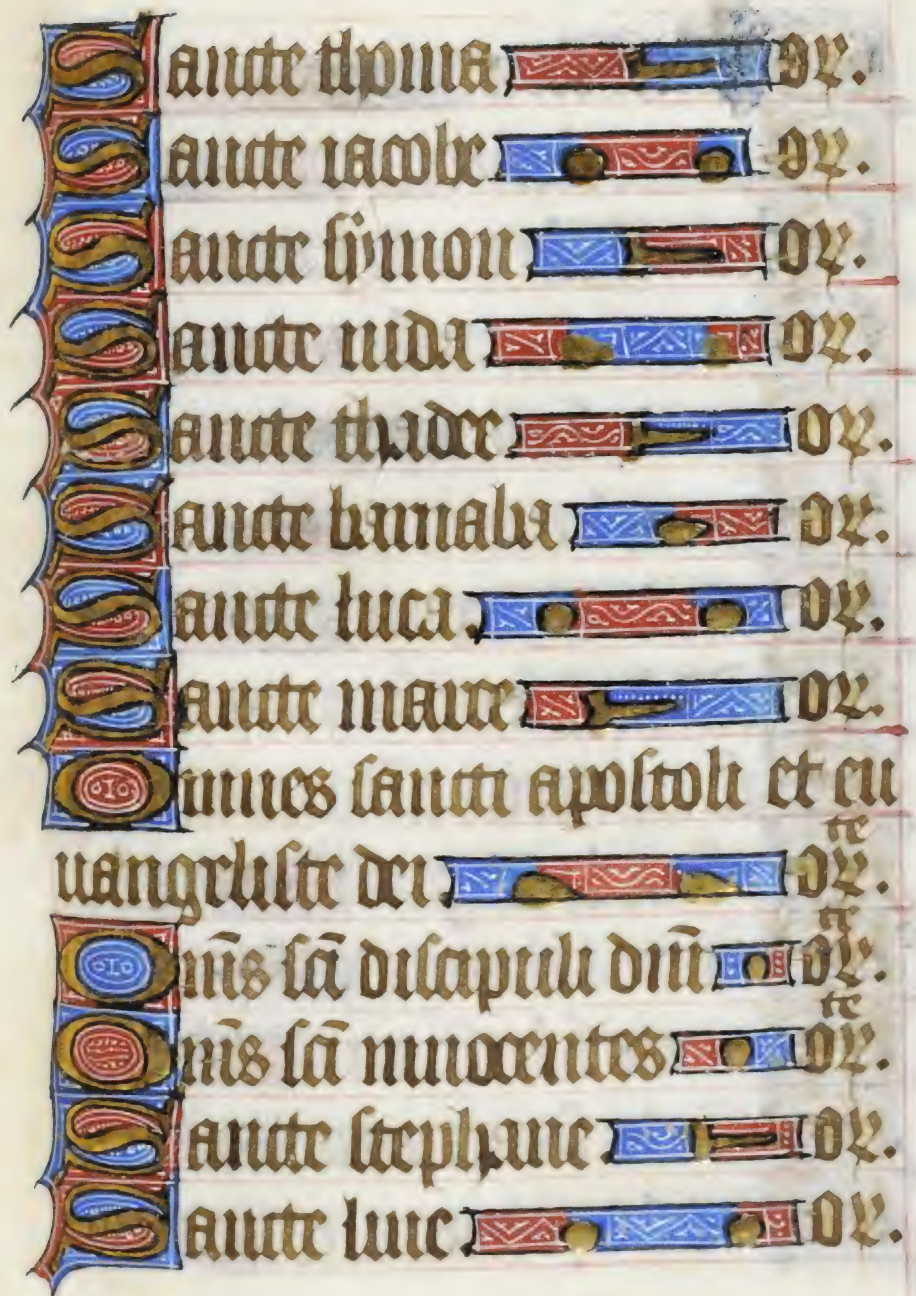 Sancte thoma or.
Sancte iacobe or.
Sancte ſymon or.
Sancte iuda or.
Sancte thadee or.
Sancte barnaba or.
Sancte luca. or.
Sancte marce or.
Omnes ſancti apoſtoli et eu
uangeliſte dei orte.
Om̄s ſc̄i diſcipuli dn̄i orte.
Om̄s ſc̄i innocentes orte.
Sancte ſtephane or.
Sancte line. or.